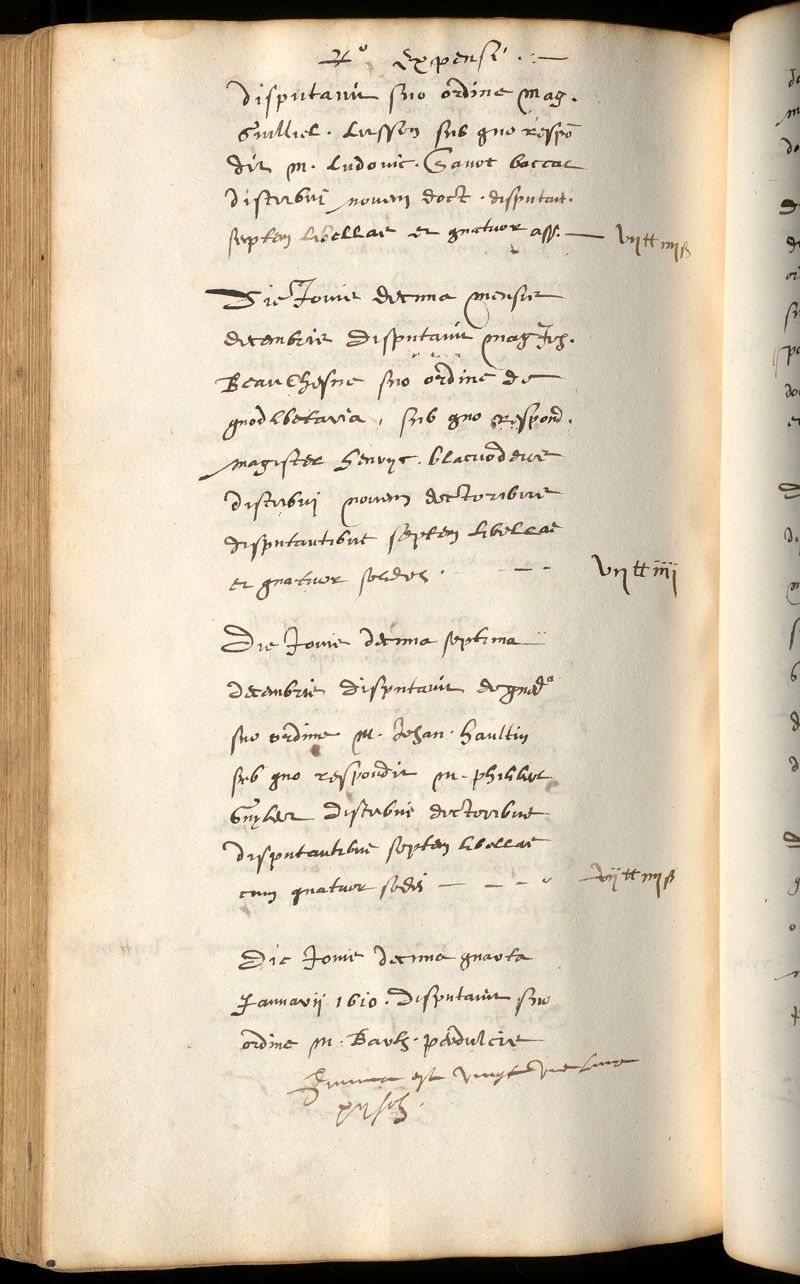 expensi
disputavit suo ordine Mag.
Guilliel. Lusson sub quo respō
dit M. Ludovic. Savot baccal
distribui novem doct. disputat.
septem libellas et quatuor ass. — vii ₶ iiii ß
Die Jovis decima mensis
decembris disputavit mag Joh.
Beauchesne suo ordine de
quodlibetaria, sub quo respond.
magister henryc. blacvodeus
distribui novem doctoribus
disputantibus septem libellas
et quatuor solidos - - - vii ₶ iiii
Die Jovis decima septima
decembris disputavit de quodª
suo ordine M. Johan. haultin
sub quo respondit M. philibert
Guybert distribui doctoribus
disputantibus septem libellas
cum quatuor solidis — - - vii ₶ iiii ß
Die Jovis decima quarta
Januarii 1610. disputavit suo
ordine M. Barth. perdulcis
Summa est vingt une livre
xii solz.